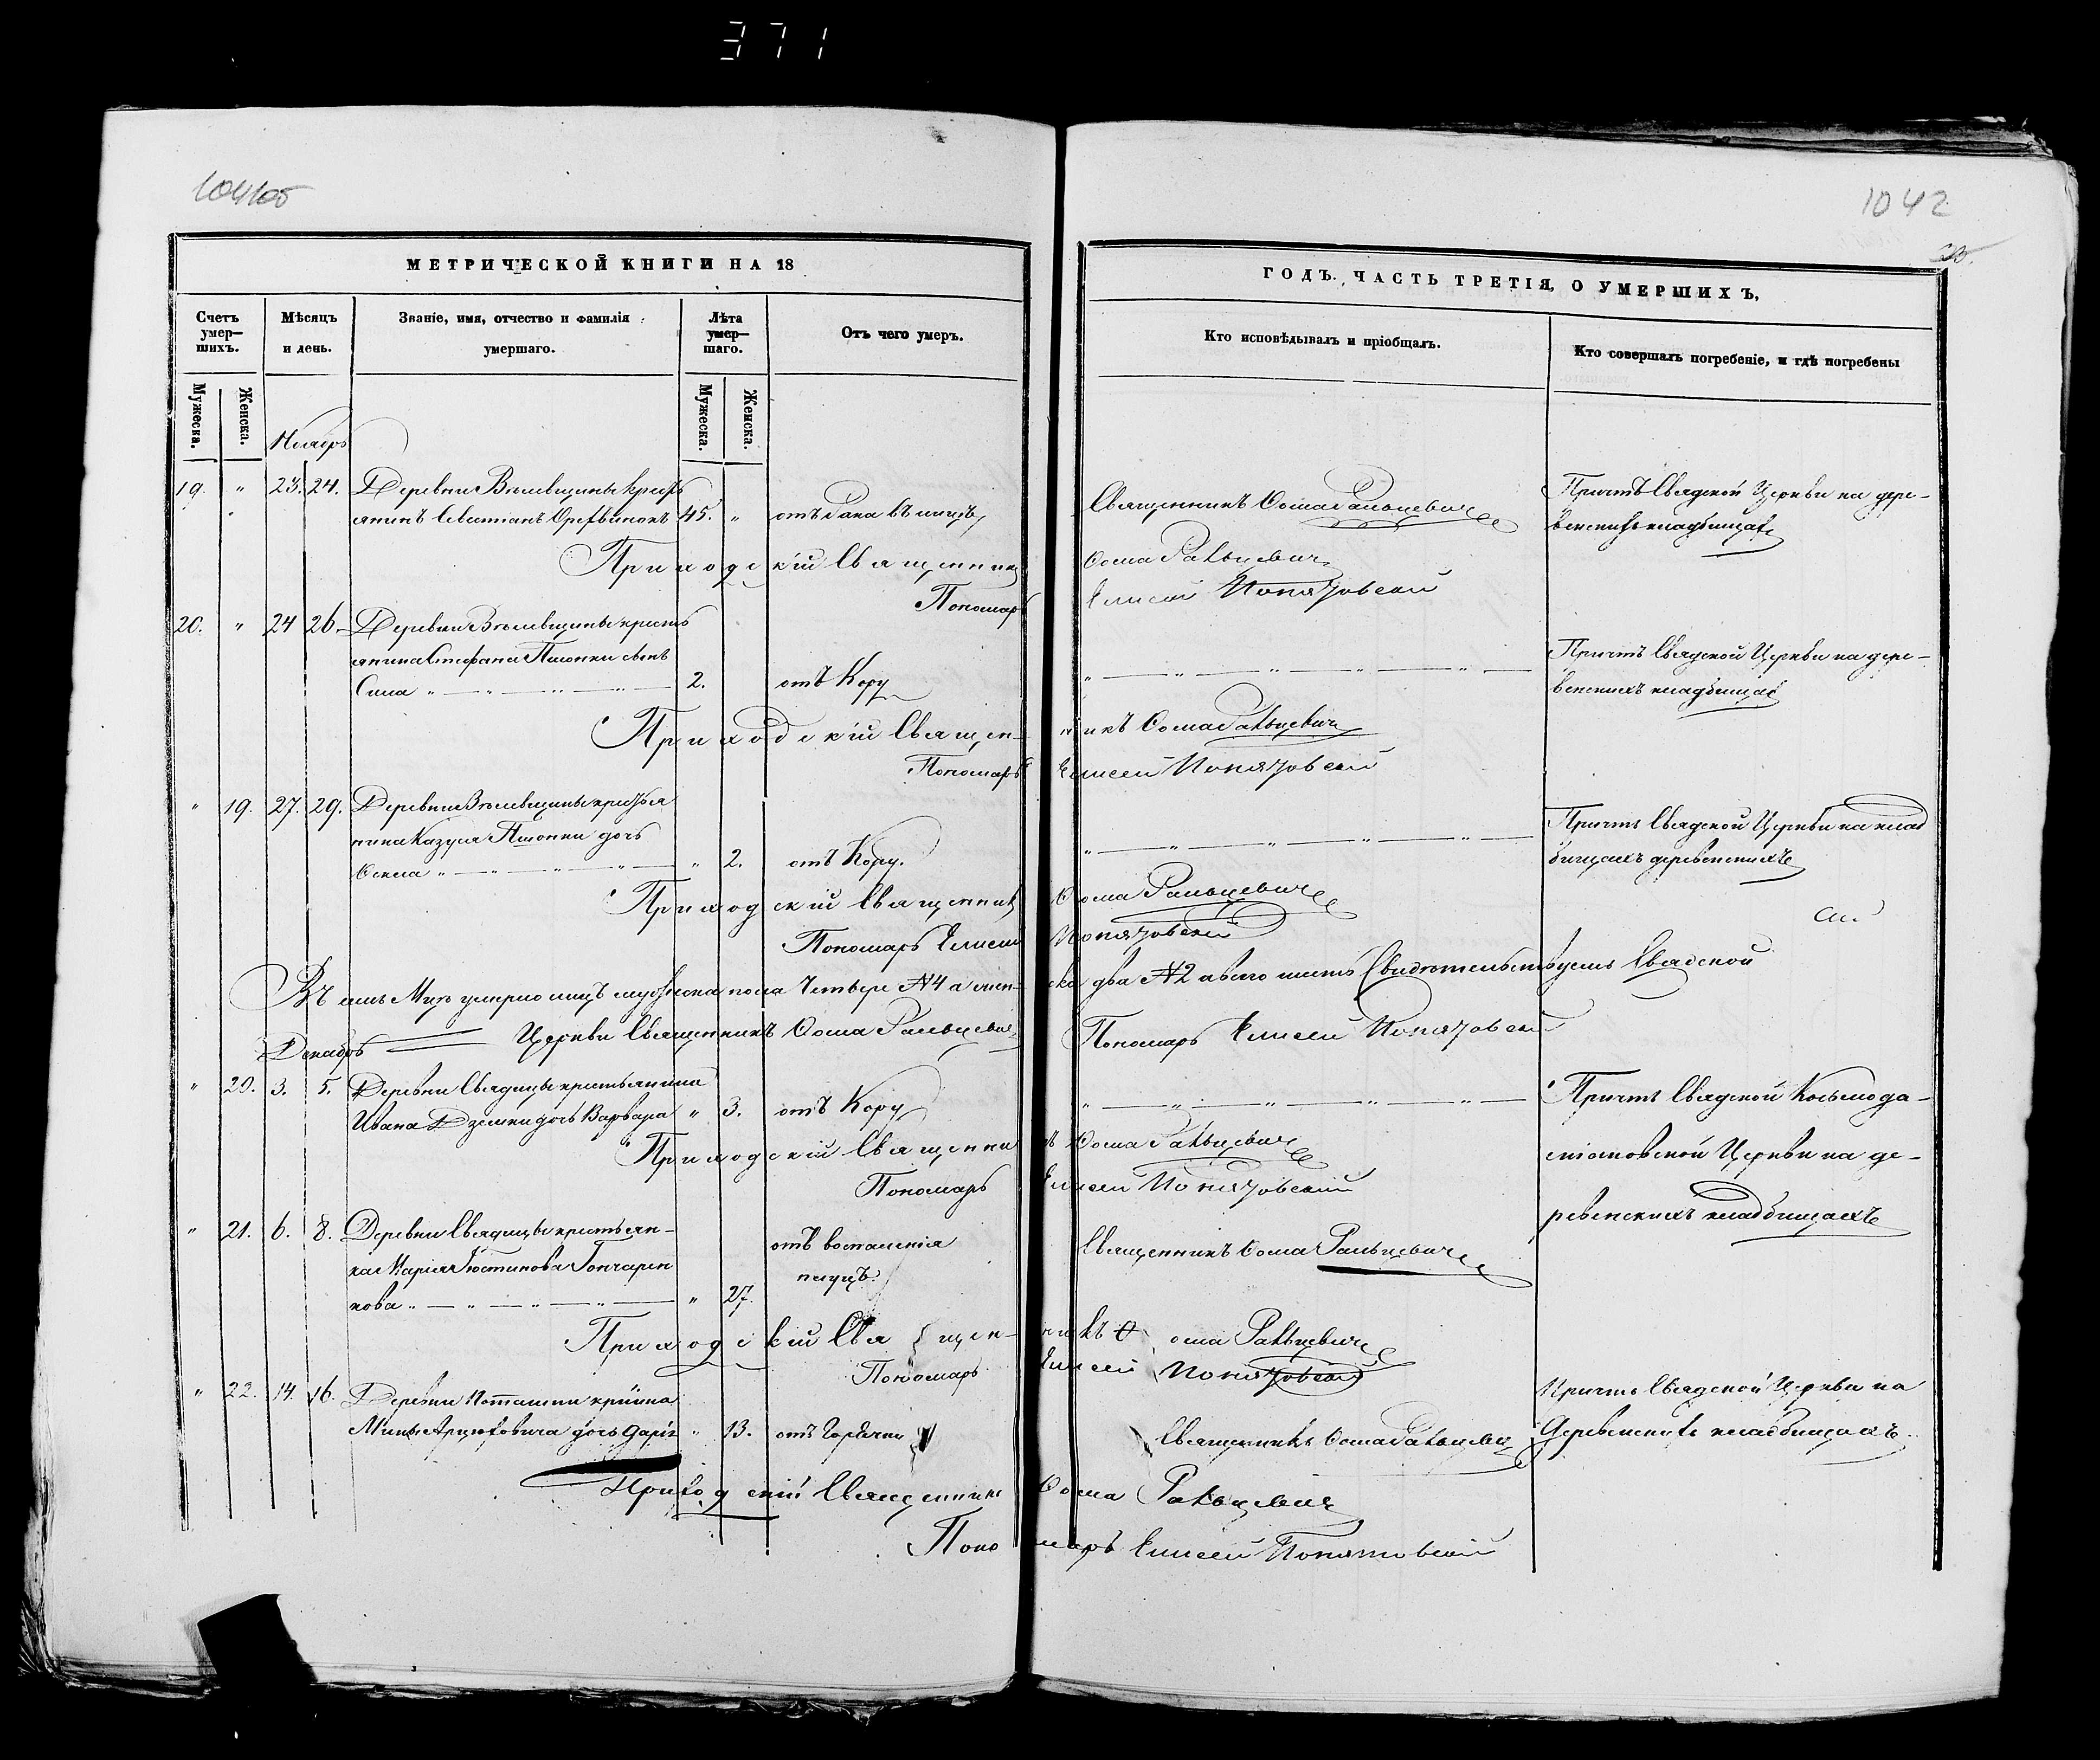 371
1042
МЕТРИЧЕСКОЙ КНИГИ НА 18
ГОДЪ. ЧАСТЬ ТРЕТІЯ, О УМЕРШИХЪ,
Счетъ умер—шихъ.
Мѣсяцъ и день.
Званіе, имя, отчество и фамилія умершаго.
Лѣта умер—шаго.
Отъ чего умеръ.
Кто исповѣдывалъ и пріобщалъ.
Кто совершалъ погребеніе, и гдѣ погребены
Мужеска.
Женска.
Мужеска.
Женска.
Ноябрь
19. " 23. 24. Деревни
45. " отъ Рака въ
Священникъ Ѳома Ральцевичъ
Причтъ Свядской Церкви на дере-
венскихъ кладбищахъ
Приходскій Священникъ Ѳома Ральцевичъ
Пономарь Елисей Понятовскій
20. " 24 26. Деревни
янина Стефана Пшонки сынъ
Сила " — " — " — " — 2. отъ Кору
Причтъ Свядской Церкви на дере-
венскихъ кладбищахъ
Приходскій Священникъ Ѳома Ральцевичъ
Пономарь Елисей Понятовскій
" 19. 27. 29. Деревни крестья
нина Пшонки дочь
" — " — " — " — " 2. отъ Кору.
Причтъ Свядской Церкви на клад
бищахъ деревенскихъ
Приходскій Священникъ Ѳома Ральцевичъ
Пономарь Елисей Понятовскій
Въ семъ умерло лицъ мужеска пола Четыре №4 а жен-ска два №2 а всего шесть Свидѣтельствуемъ Свядской
Церкви Священникъ Ѳома Ральцевичъ Пономарь Елисей Понятовскій
Декабрь
" 20. 3. 5. Деревни Свядицы крестьянина
Ивана дочь Варвара " 3. отъ Кору
Причтъ Свядской Косьмода-
міановской Церкви на де-
ревенскихъ кладбищахъ
Приходскій Священникъ Ѳома Ральцевичъ
Пономарь Елисей Понятовскій
" 21. 6. 8. Деревни Свядицы крестьян-
кая Марія Іюстинова Гончарен
кова " — " — " — " — " 27.
отъ воспаленія
Священникъ Ѳома Ральцевичъ
Приходскій Священникъ Ѳома Ральцевичъ
Пономарь Елисей Понятовскій
" 22. 14. 16. Деревни
дочь Дарія " 13. отъ Горячки
Священникъ Ѳома Ральцевичъ
Причтъ Свядской Церкви на
Деревенскихъ кладбищахъ.
Приходскій Священникъ Ѳома Ральцевичъ
Пономарь Елисей Понятовскій